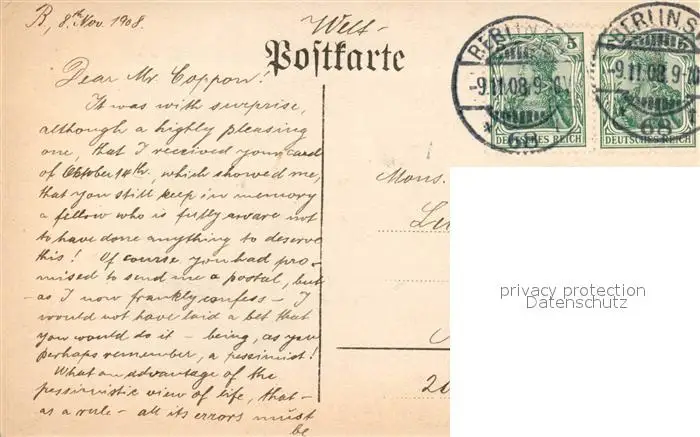 B, 8th Nov. 1908.
Welt-
Postkarte
BERLIN S
-9.11.08 9-
* 68
5
DEUTSCHES REICH
BERLIN S
-9.11.08 9-
68
DEUTSCHES REICH
Dear Mr. Coppon!
It was with surprise,
although a highly pleasing
one, that I received your card
of Oktober 14th. which showed me,
that you still keep in memory
a fellow who is fully aware not
to have done anything to deserve
this! Of course you had pro-
mised to send me a postal, but
- as I now frankly confess - I
would not have laid a bet that
you would do it - being, as you
perhaps remember, a pessimist!
What an advantage of the
pessimistic view of life, that -
as a rule - all its errors must
be
Mons.
privacy protection
Datenschutz